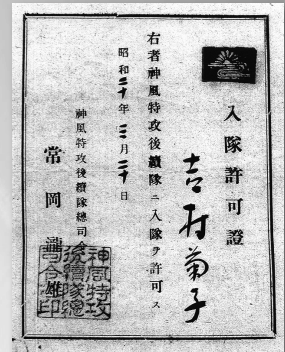 入隊許可證
吉村菊子
右者神風特攻後續隊ニ入隊ヲ許可ス
昭和二十年三月二十日
神風特攻後續隊總司令
常岡瀧雄
神風特攻
後續隊總
司令印